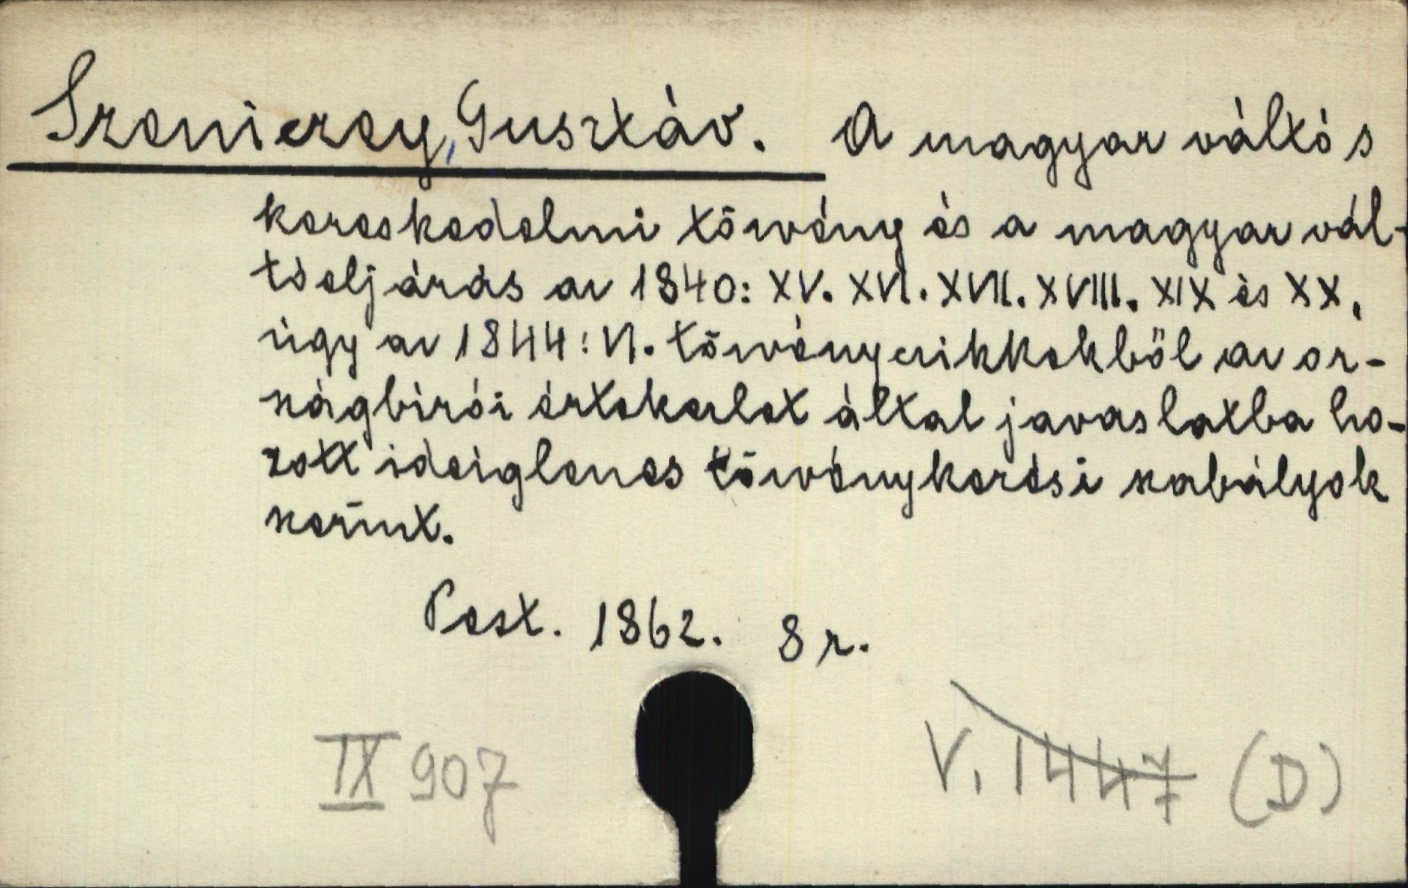 Szeniczey, Gusztáv. A magyar váltó s
kereskedelmi törvény és a magyar vál-
tóeljárás az 1840: XV. XVI. XVII. XVIII. XIX és XX,
úgy az 1844: VI. törvényczikkekből az or-
szágbirói értekezlet által javaslatba ho-
zott ideiglenes törvénykezési szabályok
szerint.
Pest. 1862. 8 r.
IX 907
V. 1447 (D)